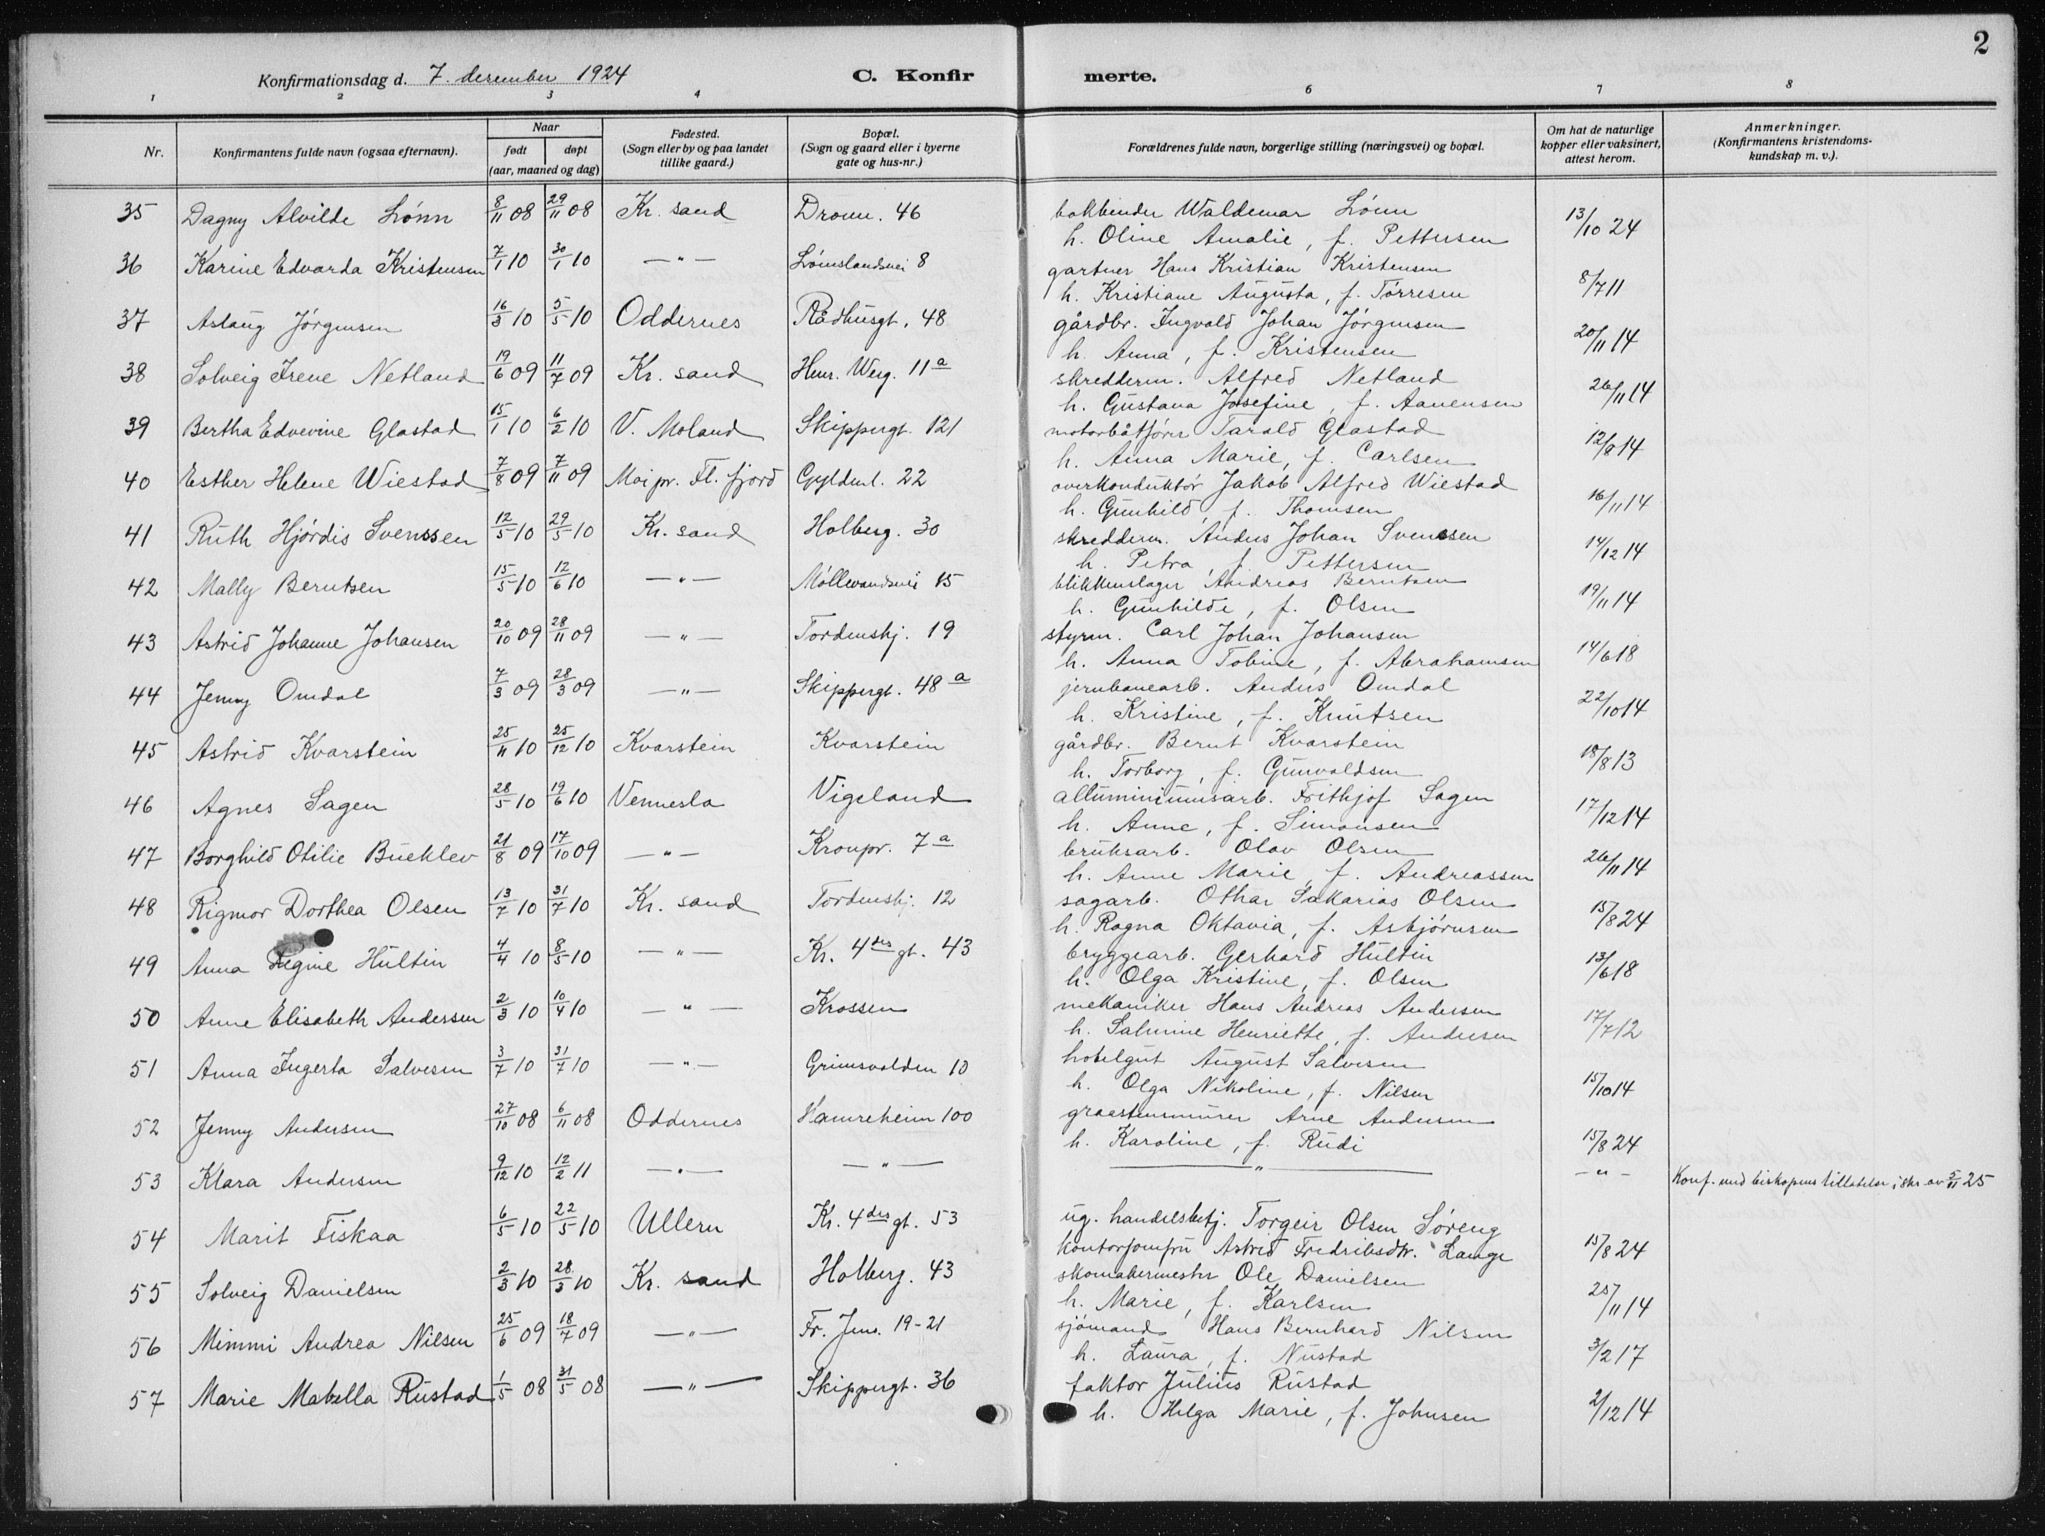 2
Konfirmationsdag d. 7. desember 1924 C. Konfir merte.
1 2 3 4 6 7 8
Nr. Konfirmantens fulde navn (ogsaa efternavn). Naar født døpt (aar, maaned og dag) Fødested. (Sogn eller by og paa landet tillike gaard.) Bopæl. (Sogn og gaard eller i byerne gate og hus-nr.) Forældrenes fulde navn, borgerlige stilling (næringsvei) og bopæl. Om hat de naturlige kopper eller vaksinert, attest herom. Anmerkninger. (Konfirmantens kristendoms-kundskap m. v.).
35 Dagny Alvilde Lönn 8/11 08 29/11 08 Kr. sand Dronn. 46 bokbinder Waldemar Lönn 13/10 24
h. Oline Amalie, f. Pettersen
36 Karine Edvarda Kristensen 7/1 10 30/1 10 —"— Lömslandsvei 8 gartner Hans Kristian Kristensen 8/7 11
h. Kristiane Augusta, f. Törresen
37 Aslaug Jörgensen 16/3 10 5/5 10 Oddernes Rådhusgt. 48 gårdbr. Ingvald Johan Jörgensen 20/11 14
h. Anna, f. Kristensen
38 Solveig Irene Netland 19/6 09 11/7 09 Kr. sand Henr. Werg. 11a skredderm. Alfred Netland 26/11 14
h. Gustava Josefine, f. Aanensen
39 Bertha Edvevine Glastad 15/1 10 6/2 10 V. Moland Skippergt. 121 motorbåtförer Tarald Glastad 12/9 14
h. Anna Marie, f. Carlsen
40 Esther Helene Wiestad 7/8 09 7/11 09 Moi pr. Fl. fjord Gyldenl. 22 overkonduktör Jakob Alfred Wiestad 16/11 14
h. Gunhild, f. Thomsen
41 Ruth Hjördis Svenssen 12/5 10 29/5 10 Kr. sand Holberg. 30 skredderm. Anders Johan Svenssen 14/12 14
h. Petra, f. Pettersen
42 Mally Berntsen 15/5 10 12/6 10 —"— Möllevandsvei 15 blikkenslager Andreas Berntsen 19/11 14
h. Gunhilde, f. Olsen
43 Astrid Johanne Johansen 20/10 09 28/11 09 —"— Tordenskj. 19 styrm. Carl Johan Johansen 14/6 18
h. Anna Tobine, f. Abrahamsen
44 Jenny Omdal 7/3 09 28/3 09 —"— Skippergt. 48a jernbanearb. Anders Omdal 22/10 14
h. Kristine, f. Knutsen
45 Astrid Kvarstein 25/11 10 25/12 10 Kvarstein Kvarstein gårdbr. Bernt Kvarstein 18/8 13
h. Torborg, f. Gunvaldsen
46 Agnes Sagen 28/5 10 19/6 10 Vennesla Vigeland alluminiumsarb. Frithjof Sagen 17/12 14
h. Anne, f. Simonsen
47 Borghild Otilie Bueklev 21/8 09 17/10 09 —"— Kronpr. 7a bruksarb. Olav Olsen 26/11 14
h. Anne Marie, f. Andreassen
48 Rigmor Dorthea Olsen 13/7 10 31/7 10 Kr. sand Tordenskj. 12 sagarb. Othar Sakarias Olsen 15/8 24
h. Ragna Oktavia, f. Asbjörnsen
49 Anna Regine Hultin 4/4 10 8/5 10 —"— Kr. 4des gt. 43 bryggearb. Gerhard Hultin 13/6 18
h. Olga Kristine, f. Olsen
50 Anne Elisabeth Andersen 2/3 10 10/4 10 —"— Krossen mekaniker Hans Andreas Andersen 17/7 12
h. Salmine Henriette, f. Andersen
51 Anna Ingerta Salvesen 3/7 10 31/7 10 —"— Grimsvolden 10 hotelgut August Salvesen 15/10 14
h. Olga Nikoline, f. Nilsen
52 Jenny Andersen 27/10 08 6/11 08 Oddernes Hamreheim 100 graastensmurer Arne Andersen 15/8 24
h. Karoline, f. Rudi
53 Klara Andersen 9/12 10 12/2 11 —"— —"— —"— —"— Konf. med biskopens tillatelse i skr. av 5/11 25
54 Marit Fiskaa 6/5 10 22/5 10 Ullern Kr. 4des gt. 53 ug. handelsbetj. Torgeir Olsen Söreng 15/8 24
kontorjomfru Astrid Fredriksdtr. Lange
55 Solveig Danielsen 2/3 10 28/3 10 Kr. sand Holberg. 43 skomakermester Ole Danielsen 25/11 14
h. Marie, f. Karlsen
56 Mimmi Andrea Nilsen 25/6 09 18/7 09 —"— Fr. Jens. 19-21 sjömand Hans Bernhard Nilsen 3/2 17
h. Laura, f. Nustad
57 Marie Mabella Rustad 1/5 08 31/5 08 —"— Skippergt. 36 faktor Julius Rustad 2/12 14
h. Helga Marie, f. Johnsen